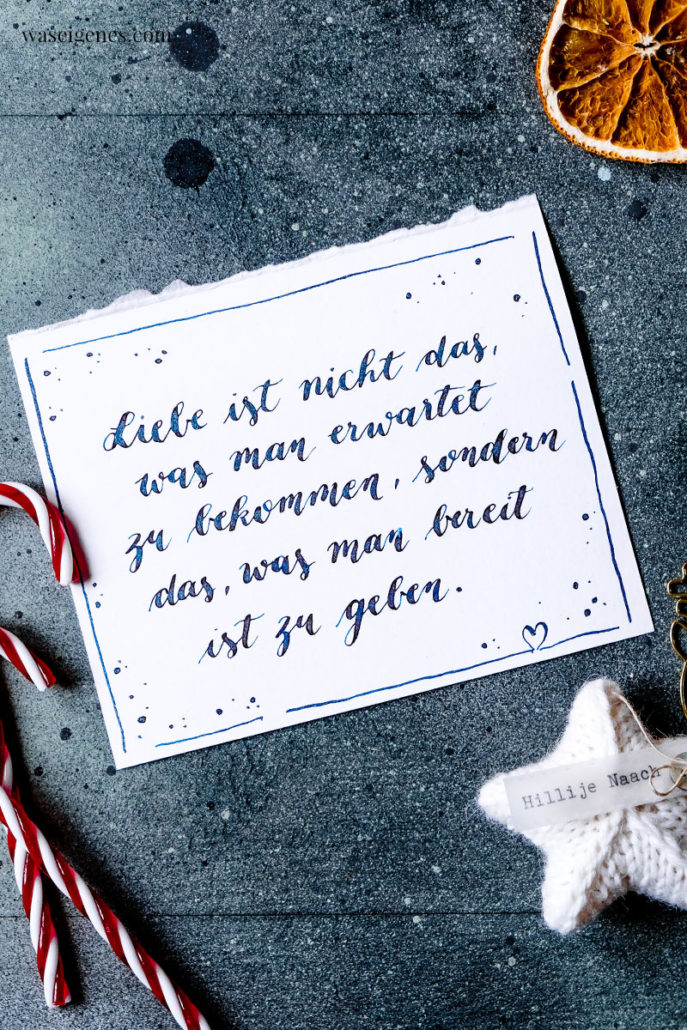 waseigenes.com
Liebe ist nicht das,
was man erwartet
zu bekommen, sondern
das, was man bereit
ist zu geben.
Hillije Naach